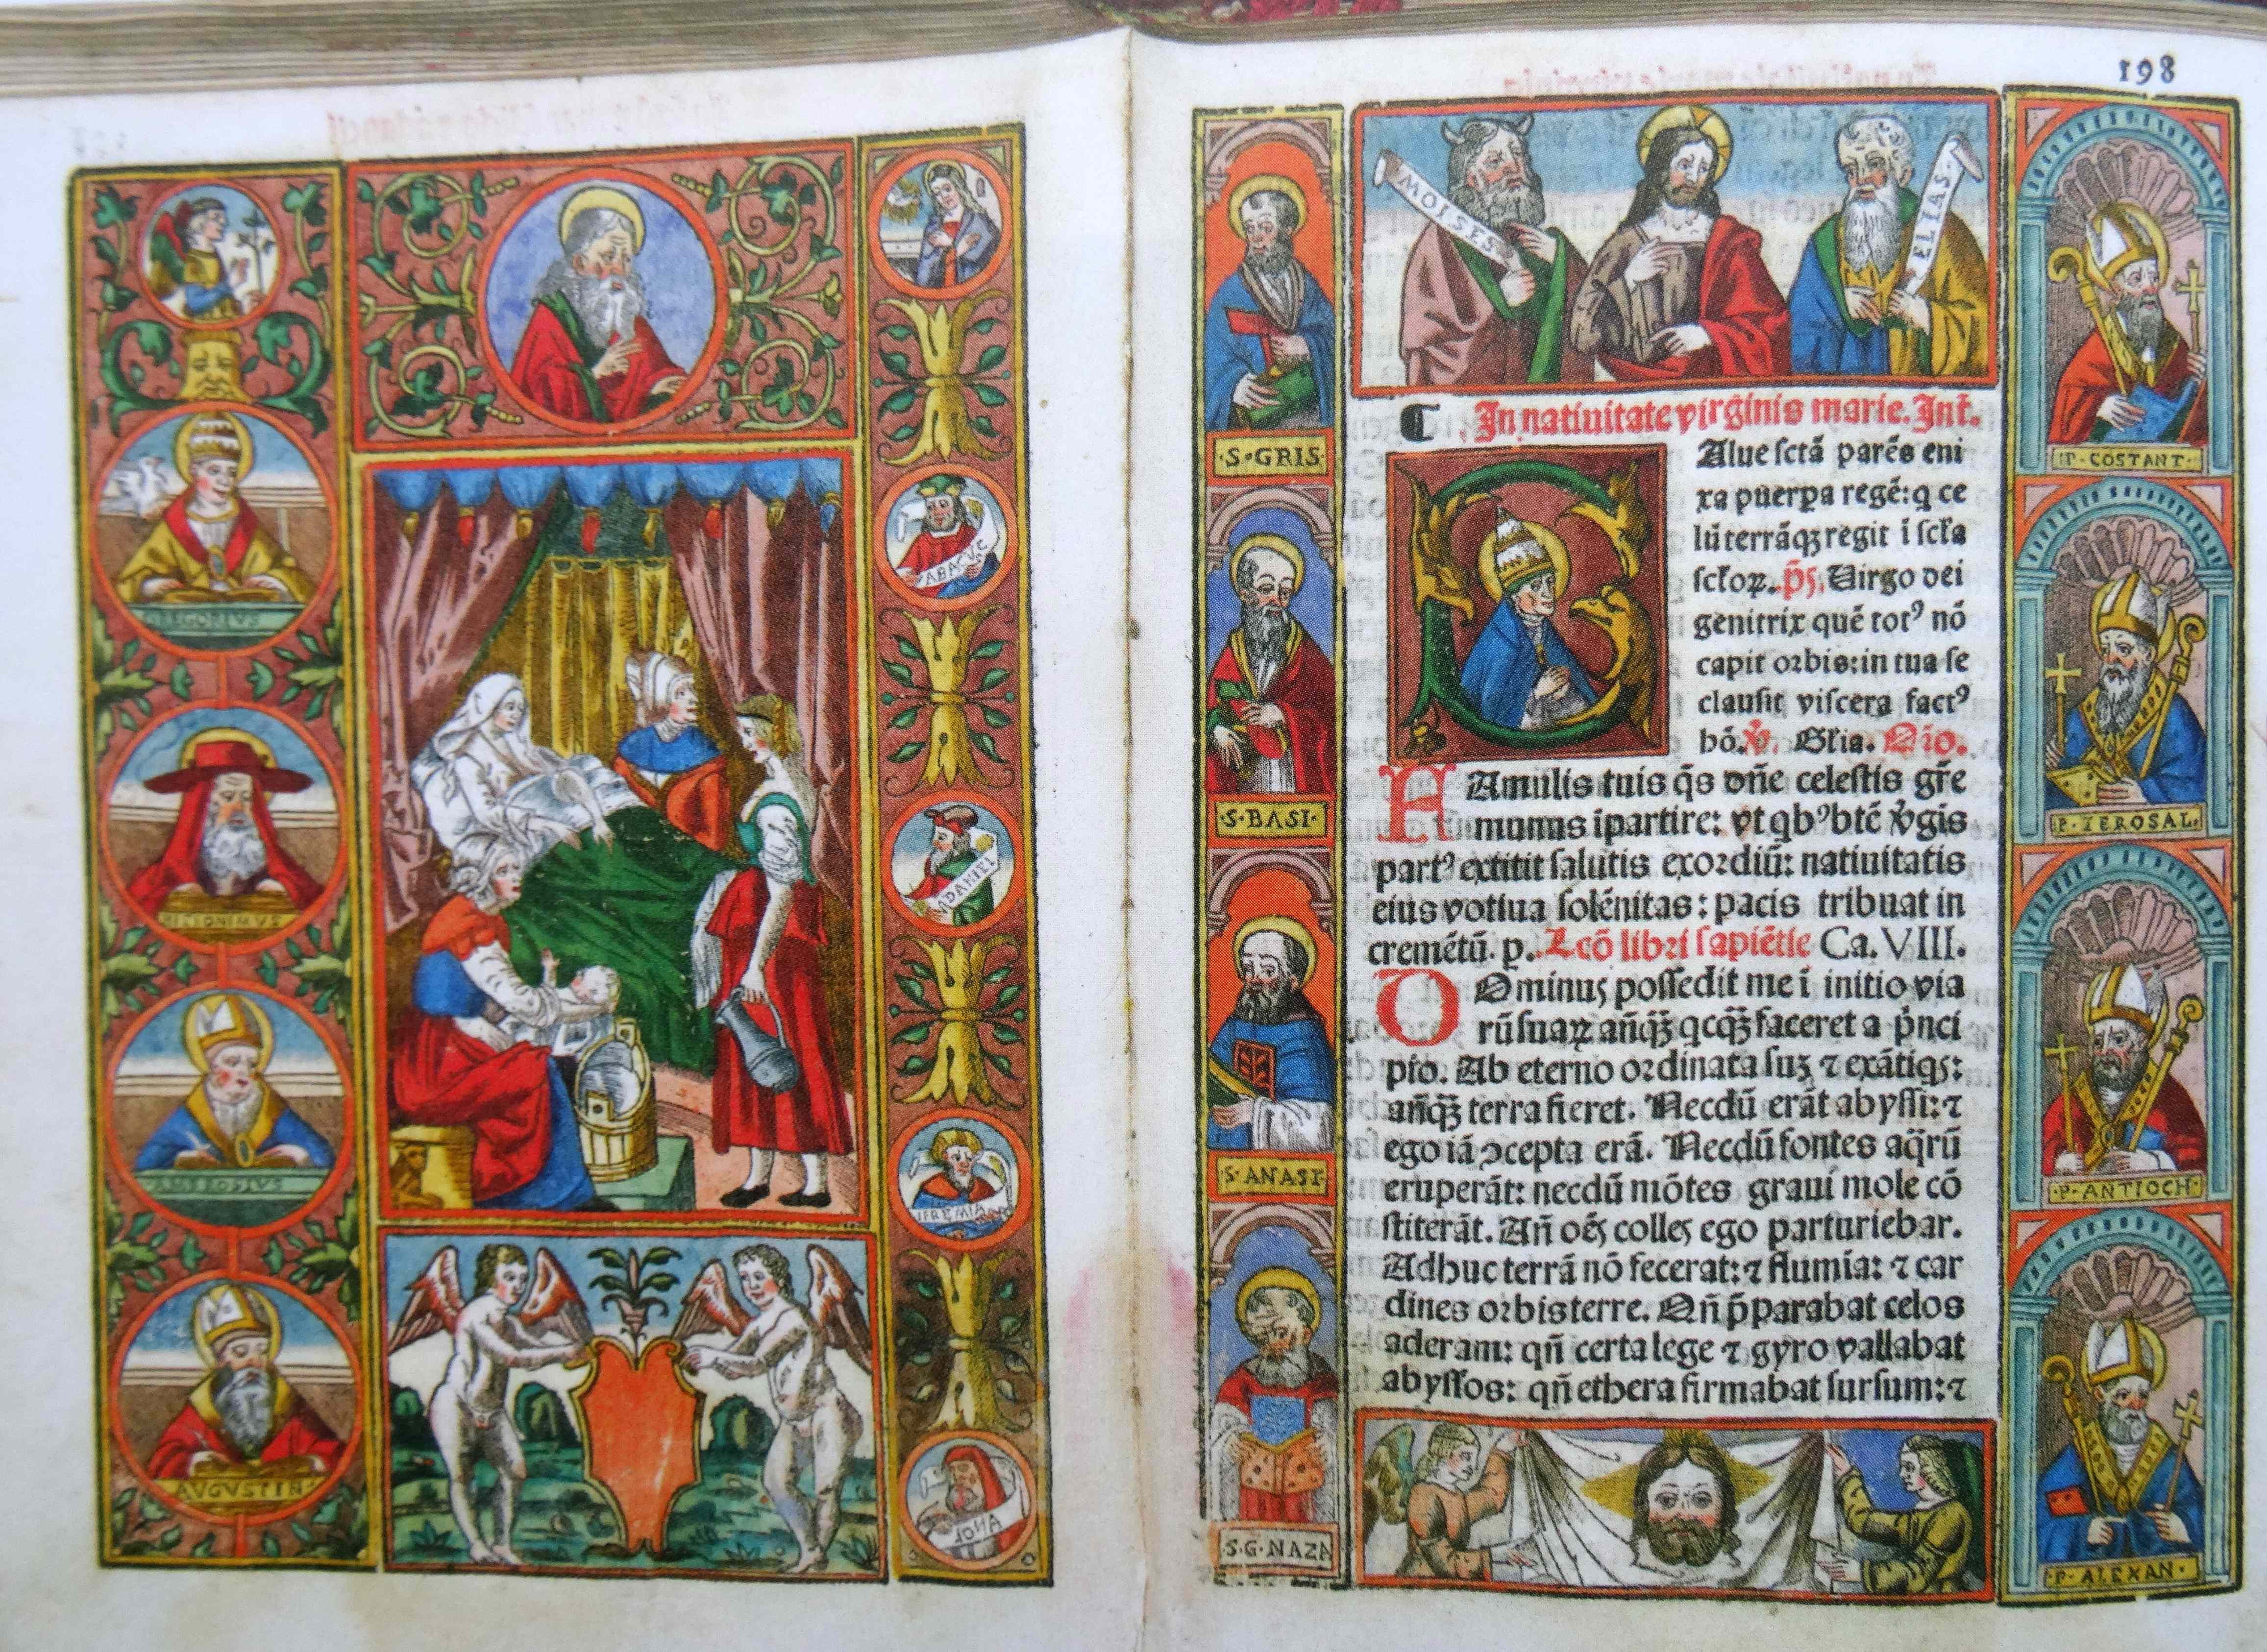 GREGORIVS
HIERONIMVS
AMBROSIVS
AUGUSTIN
ABACVC
DANIEL
IEREMIA
IONA
198
MOISES
ELIAS.
·S·GRIS·
·S·BASI·
·S·ANAST
·S·G·NAZA
¶ In natiuitate virginis marie. Int̄.
SAlue sctā parēs eni
xa puerpa regē: q ce
lū terrāqꝫ regit ī scl̄a
scl̄oꝝ. p̄s. Uirgo dei
genitrix quē totꝰ nō
capit orbis: in tua se
clausit viscera factꝰ
hō. ℣. Gl̄ia. Oīo.
FAmulis tuis q̄s dn̄e celestis gr̄e
munus īpartire: vt qbꝰ btē v̓gis
partꝰ extitit salutis exordiū: natiuitatis
eius votiua solēnitas: pacis tribuat in
cremētū. p. Lcō libri sapiētie Ca. VIII.
DOminus possedit me ī initio via
rū suaꝝ añqꝫ̄ qcqꝫ̄ faceret a p̓nci
pio. Ab eterno ordinata suꝫ ⁊ ex ātiqs:
añqꝫ̄ terra fieret. Necdū erāt abyssi: ⁊
ego iā ↄcepta erā. Necdū fontes aq̄rū
eruperāt: necdū mōtes graui mole cō
stiterāt. Añ oēs colles ego parturiebar.
Adhuc terrā nō fecerat: ⁊ flumīa: ⁊ car
dines orbis terre. Qñ p̄parabat celos
aderam: qñ certa lege ⁊ gyro vallabat
abyssos: qñ ethera firmabat sursum: ⁊
·P·COSTANT·
·P·IEROSAL·
·P·ANTIOCH·
·P·ALEXAN·